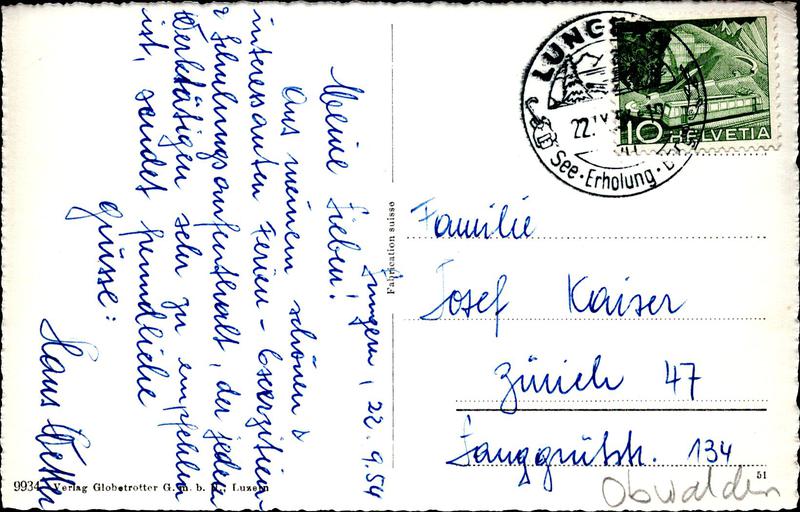 Lungern, 22.9.54
Meine Lieben!
Aus meinem schönen &
interessanten Ferien - Exerzitien
& Schulungsaufenthalt, der jedem
Werktätigen sehr zu empfehlen
ist, sendet freundliche
Grüsse:
Hans
LUNGERN
22.IX.54
See • Erholung •
10 HELVETIA
Fabrication suisse
Familie
Josef Kaiser
Zürich 47
Langgrütstr. 134
Obwalden
51
9934 Verlag Globetrotter G. m. b. H., Luzern